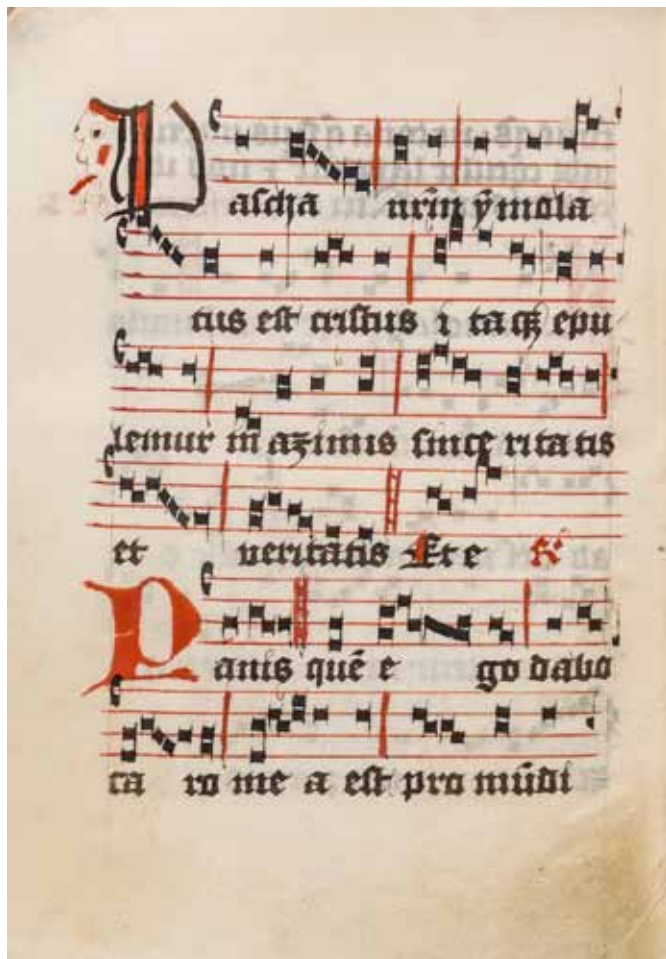 Pascha nr̄m ȳmola
tus est cristus ita qꝫ epu
lemur in aꝫimis sinceritatis
et veritatis Et e ℟
Panis quē ego dabo
caro mea est pro mūdi